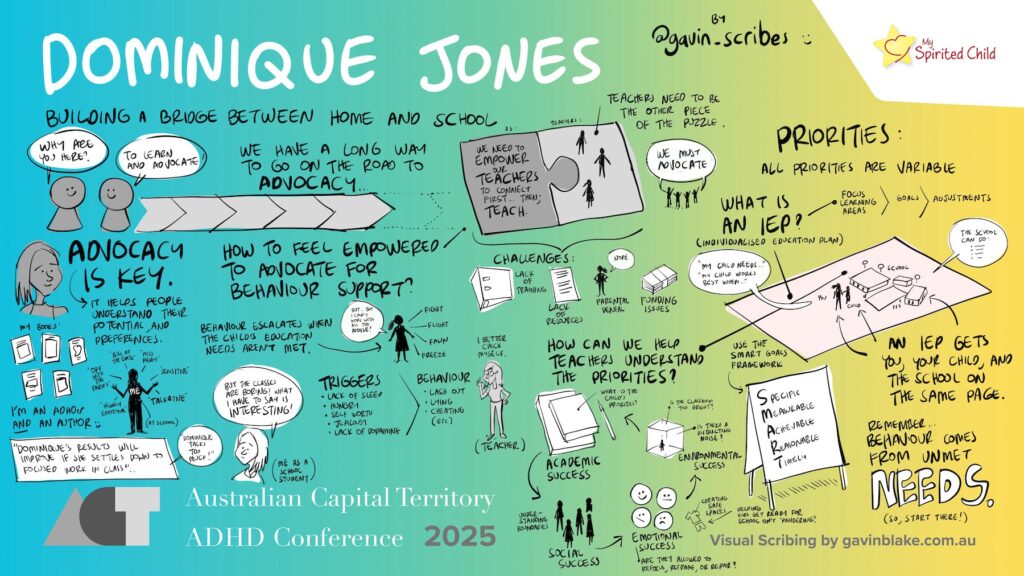 DOMINIQUE JONES
BY
@gavin_scribes
My
Spirited Child
BUILDING A BRIDGE BETWEEN HOME AND SCHOOL
WHY ARE
YOU HERE?
TO LEARN
AND ADVOCATE
WE HAVE A LONG WAY
TO GO ON THE ROAD TO
ADVOCACY...
US:
TEACHERS:
WE NEED TO
EMPOWER
OUR
TEACHERS
TO CONNECT
FIRST... THEN,
TEACH.
TEACHERS NEED TO BE
THE OTHER PIECE
OF THE PUZZLE.
WE MUST
ADVOCATE
PRIORITIES:
ALL PRIORITIES ARE VARIABLE
WHAT IS
AN IEP?
(INDIVIDUALISED EDUCATION PLAN)
FOCUS
LEARNING
AREAS
GOALS
ADJUSTMENTS
"MY CHILD NEEDS..."
"MY CHILD WORKS
BEST WHEN..."
THE SCHOOL
CAN DO:
SCHOOL
YOU
CHILD
AN IEP GETS
YOU, YOUR CHILD, AND
THE SCHOOL ON
THE SAME PAGE.
REMEMBER...
BEHAVIOUR COMES
FROM UNMET
NEEDS.
(SO, START THERE!)
ADVOCACY
IS KEY.
IT HELPS PEOPLE
UNDERSTAND THEIR
POTENTIAL, AND
PREFERENCES.
MY BOOKS!
"OFF WITH
THE FAIRIES"
MISS
"SENSITIVE"
"TALKATIVE"
"HIGHLY
EMOTIONAL"
ME
(AT SCHOOL)
I'M AN ADHDER
AND AN AUTHOR
"DOMINIQUE'S RESULTS WILL
IMPROVE IF SHE SETTLES DOWN TO
FOCUSED WORK IN CLASS"...
DOMINIQUE
TALKS
TOO
MUCH!"
HOW TO FEEL EMPOWERED
TO ADVOCATE FOR
BEHAVIOUR SUPPORT?
BEHAVIOUR ESCALATES WHEN
THE CHILD'S EDUCATION
NEEDS AREN'T MET.
BUT... SIR
I CAN'T
WORK WITH
ALL THE
NOISE!
FIGHT
FLIGHT
FAWN
FREEZE
BUT THE CLASSES
ARE BORING! WHAT
I HAVE TO SAY IS
INTERESTING!
(ME AS A
SCHOOL
STUDENT)
TRIGGERS
• LACK OF SLEEP
• HUNGRY
• SELF WORTH
• JEALOUSY
• LACK OF DOPAMINE
BEHAVIOUR
• LASH OUT
• LYING
• CHEATING
(ETC)
I BETTER
CHECK
MYSELF.
(TEACHER)
CHALLENGES:
LACK
OF
TRAINING
LACK
OF
RESOURCES
NOPE
PARENTAL
DENIAL
FUNDING
ISSUES
HOW CAN WE HELP
TEACHERS UNDERSTAND
THE PRIORITIES?
WHAT IS THE
CHILD'S
PRIORITIES?
ACADEMIC
SUCCESS
IS THE CLASSROOM
TOO BRIGHT?
IS THERE A
DISTRACTING
NOISE?
ENVIRONMENTAL
SUCCESS
UNDER-
STANDING
BOUNDARIES
SOCIAL
SUCCESS
EMOTIONAL
SUCCESS
CREATING
SAFE
SPACE!
HELPING
KIDS GET READY FOR
SCHOOL ISN'T "PANDERING!"
ARE THEY ALLOWED TO
REFOCUS, REFRAME, OR REPAIR?
USE THE
SMART GOALS
FRAMEWORK
SPECIFIC
MEASURABLE
ACHIEVABLE
REASONABLE
TIMELY
ACT
Australian Capital Territory
ADHD Conference 2025
Visual Scribing by gavinblake.com.au